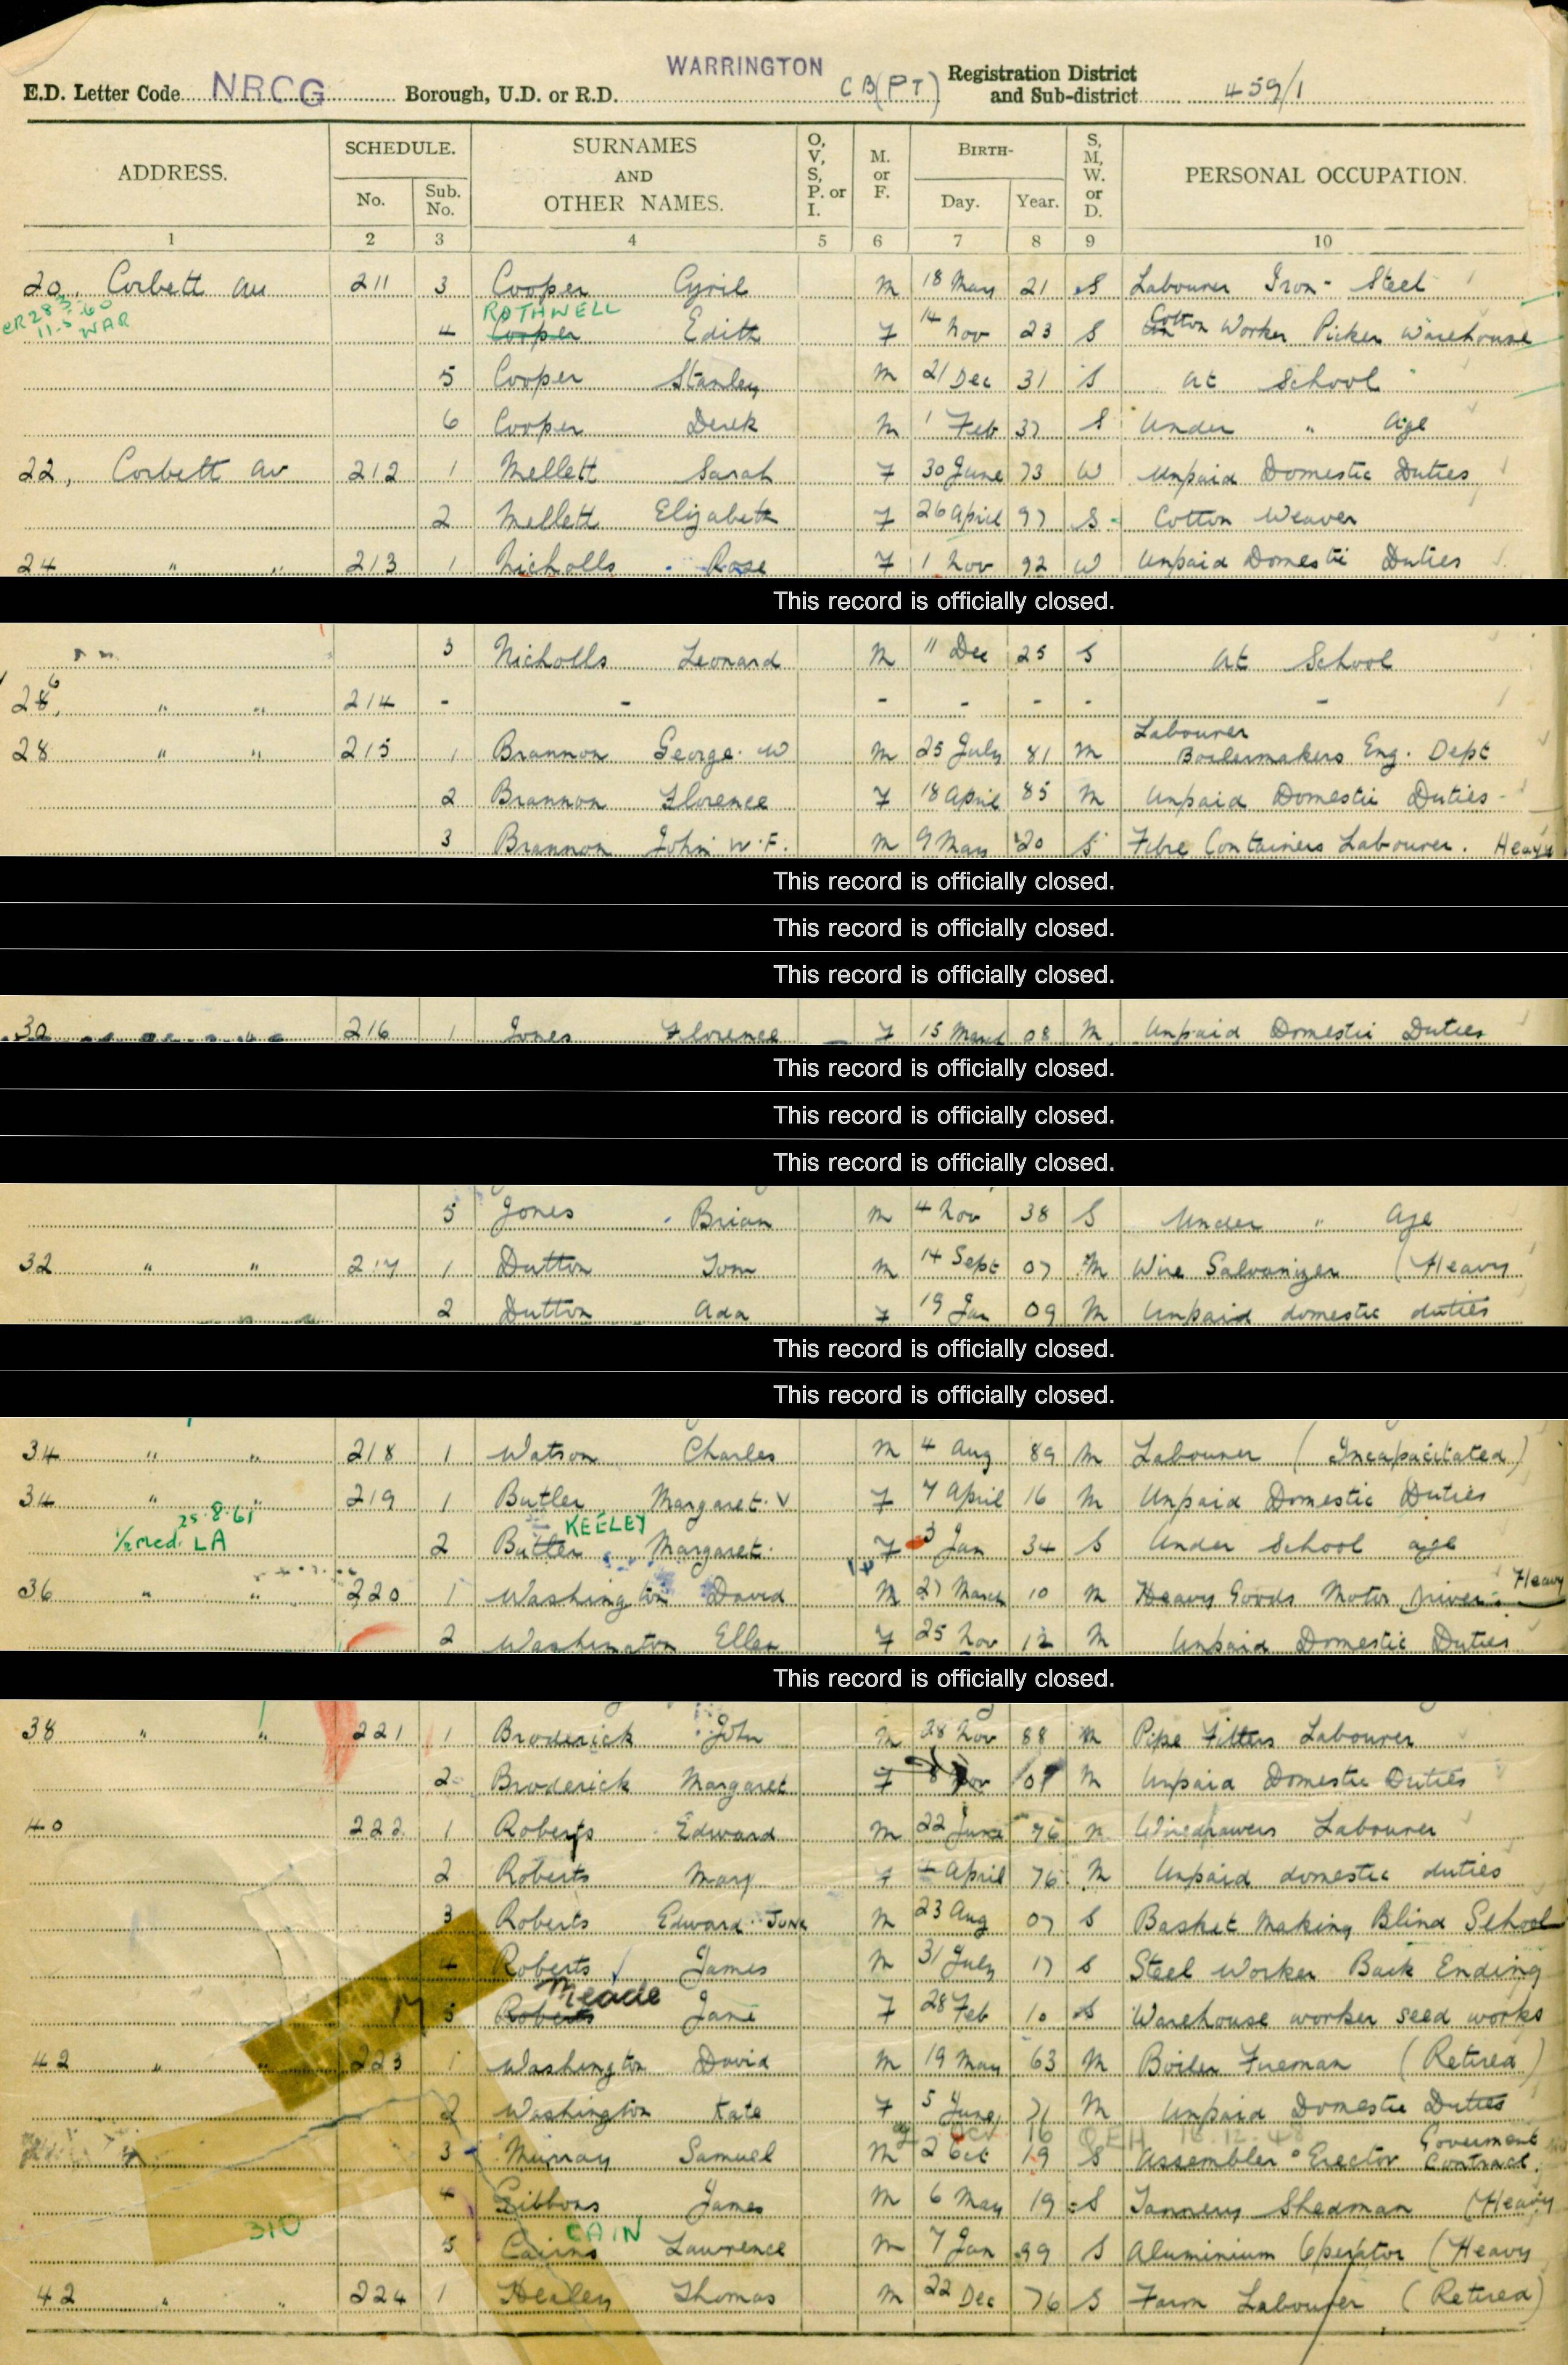 WARRINGTON
E.D. Letter Code NRCG Borough, U.D. or R.D. CB(PT) Registration District and Sub-district 459/1
ADDRESS. SCHEDULE. No. Sub. No. SURNAMES AND OTHER NAMES. O, V, S, P. or I. M. or F. BIRTH- Day. Year. S, M, W. or D. PERSONAL OCCUPATION.
1 2 3 4 5 6 7 8 9 10
20, Corbett Av 211 3 Cooper Cyril M 18 May 21 S Labourer Iron - Steel
CR283 28.3.60 11.5 WAR
ROTHWELL
4 Cooper Edith F 14 Nov 23 S Cotton Worker Picker Warehouse
5 Cooper Stanley M 21 Dec 31 S At School
6 Cooper Derek M 1 Feb 37 S Under " Age
22, Corbett Av 212 1 Mellett Sarah F 30 June 73 W Unpaid Domestic Duties
2 Mellett Elizabeth F 26 April 97 S Cotton Weaver
24 " " 213 1 Nicholls Rose F 1 Nov 92 W Unpaid Domestic Duties
This record is officially closed.
3 Nicholls Leonard M 11 Dec 25 S At School
26, " " 214 - - - - - - -
28 " " 215 1 Brannon George W M 25 July 81 M Labourer Boilermakers Eng. Dept
2 Brannon Florence F 18 April 85 M Unpaid Domestic Duties
3 Brannon John W.F. M 9 May 20 S Fibre Containers Labourer. Heavy
This record is officially closed.
This record is officially closed.
This record is officially closed.
30 216 1 Jones Florence F 15 March 08 M Unpaid Domestic Duties
This record is officially closed.
This record is officially closed.
This record is officially closed.
5 Jones Brian M 4 Nov 38 S Under " Age
32 " " 217 1 Dutton Tom M 14 Sept 07 M Wire Galvanizer (Heavy
2 Dutton Ada F 19 Jan 09 M Unpaid domestic duties
This record is officially closed.
This record is officially closed.
34 " " 218 1 Watson Charles M 4 Aug 89 M Labourer (Incapacitated)
34 " " 219 1 Butler Margaret. V F 7 April 16 M Unpaid Domestic Duties
25.8.61 KEELEY
1/2 med. LA 2 Butler Margaret. F 3 Jan 34 S Under School age
36 " " 220 1 Washington David M 27 March 10 M Heavy Goods Motor Driver. Heavy
2 Washington Ellen F 25 Nov 12 M Unpaid Domestic Duties
This record is officially closed.
38 " " 221 1 Broderick John M 28 Nov 88 M Pipe Fitters Labourer
2 Broderick Margaret F 8 Nov 01 M Unpaid Domestic Duties
40 222 1 Roberts Edward M 22 June 76 M Wiredrawers Labourer
2 Roberts Mary F 4 April 76 M Unpaid domestic duties
3 Roberts Edward Junr M 23 Aug 07 S Basket Making Blind School
4 Roberts James M 31 July 17 S Steel Worker Back Ending
Meade
5 Roberts Jane F 28 Feb 10 S Warehouse worker seed works
42 " " 223 1 Washington David M 19 May 63 M Boiler Fireman (Retired)
2 Washington Kate F 5 June 71 M Unpaid Domestic Duties
Oct 16 QEH 16.12.48
3 Murray Samuel M 2 Oct 19 S Assembler Erector Goverment Contract.
4 Gibbons James M 6 May 19 S Tannery Shedman (Heavy
310 CAIN
5 Cairns Lawrence M 7 Jan 99 S Aluminium Operator (Heavy
42 " " 224 1 Healey Thomas M 22 Dec 76 S Farm Labourer (Retired)